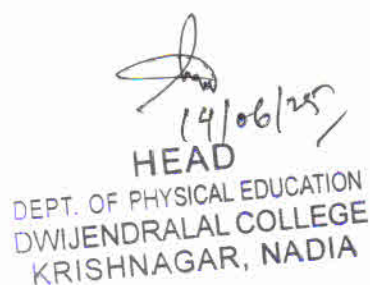 14/06/25
HEAD
DEPT. OF PHYSICAL EDUCATION
DWIJENDRALAL COLLEGE
KRISHNAGAR, NADIA